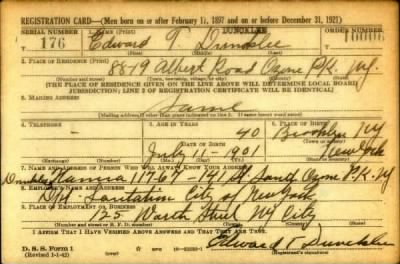 REGISTRATION CARD—(Men born on or after February 17, 1897 and on or before December 31, 1921)
SERIAL NUMBER 1. NAME (Print) DUNCKLEE ORDER NUMBER
T 176 Edward T. Duncklee
2. PLACE OF RESIDENCE (Print)
8879 Albert Road Ozone P.K. N.Y.
(Number and street) (Town, township, village, or city) (County) (State)
[THE PLACE OF RESIDENCE GIVEN ON THE LINE ABOVE WILL DETERMINE LOCAL BOARD
JURISDICTION; LINE 2 OF REGISTRATION CERTIFICATE WILL BE IDENTICAL]
3. MAILING ADDRESS
Same
[Mailing address if other than place indicated on line 2. If same insert word same]
4. TELEPHONE 5. AGE IN YEARS 6. PLACE OF BIRTH
- 40 Brooklyn NY
DATE OF BIRTH (Town or county)
July 11 1901 New York
(Exchange) (Number) (Mo.) (Day) (Yr.) (State or country)
7. NAME AND ADDRESS OF PERSON WHO WILL ALWAYS KNOW YOUR ADDRESS
1767 - 74 St Ozone P.K. N.Y.
8. EMPLOYER'S NAME AND ADDRESS
Sanitation City of New York
9. PLACE OF EMPLOYMENT OR BUSINESS
125 Worth Street NY City
(Number and street or R. F. D. number) (Town) (County) (State)
I AFFIRM THAT I HAVE VERIFIED ABOVE ANSWERS AND THAT THEY ARE TRUE.
D. S. S. Form 1
(Revised 1-1-42) (over)
Edward T. Duncklee